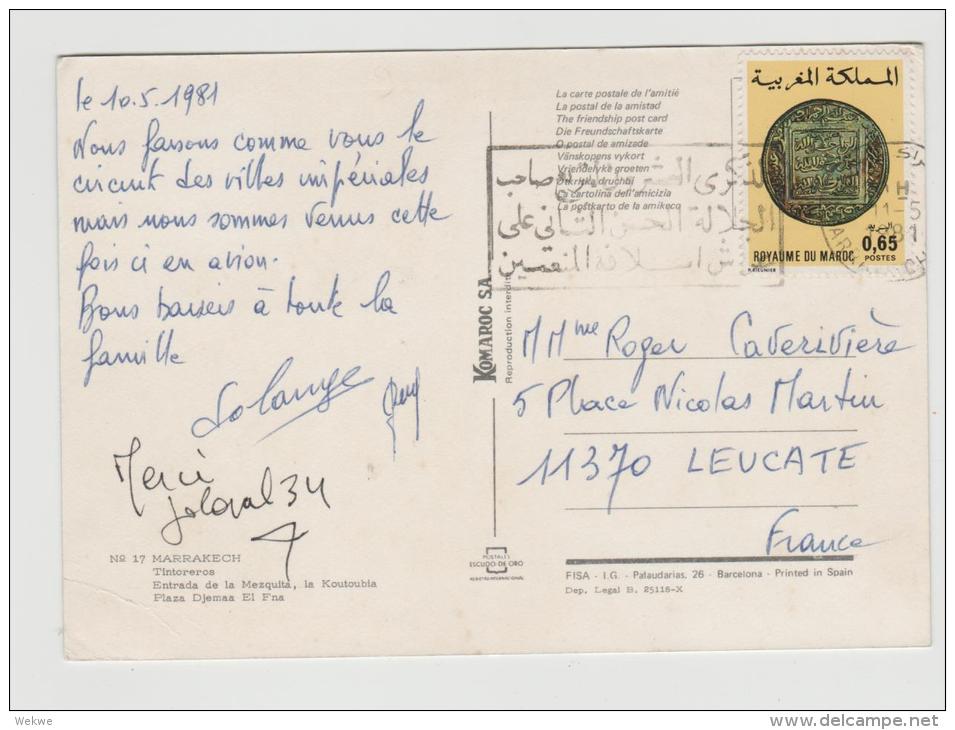 le 10.5.1981
Nous faisons comme vous le
circuit des villes impériales
mais nous sommes venus cette
fois ci en avion.
Bons baisers à toute la
famille
Solange
Merci
34
Nº 17 MARRAKECH
Tintoreros
Entrada de la Mezquita, la Koutoubia
Plaza Djemaa El Fna
La carte postale de l'amitié
La postal de la amistad
The friendship post card
Die Freundschaftskarte
O postal de amizade
Vänskapens vykort
Vriendelyke groeten
La cartolina dell'amicizia
La postkarto de la amikeco
لصاحب
الجلالة الحسن الثاني على
KOMAROC SA
Reproduction interdite
POSTALES
ESCUDO DE ORO
المملكة المغربية
0,65
ROYAUME DU MAROC
POSTES
11-5
1981
M Mme Roger Caverivière
5 Place Nicolas Martin
11370 LEUCATE
France
FISA - I.G. - Palaudarias, 26 - Barcelona - Printed in Spain
Dep. Legal B. 25118-X
Wekwe
www.delcampe.net